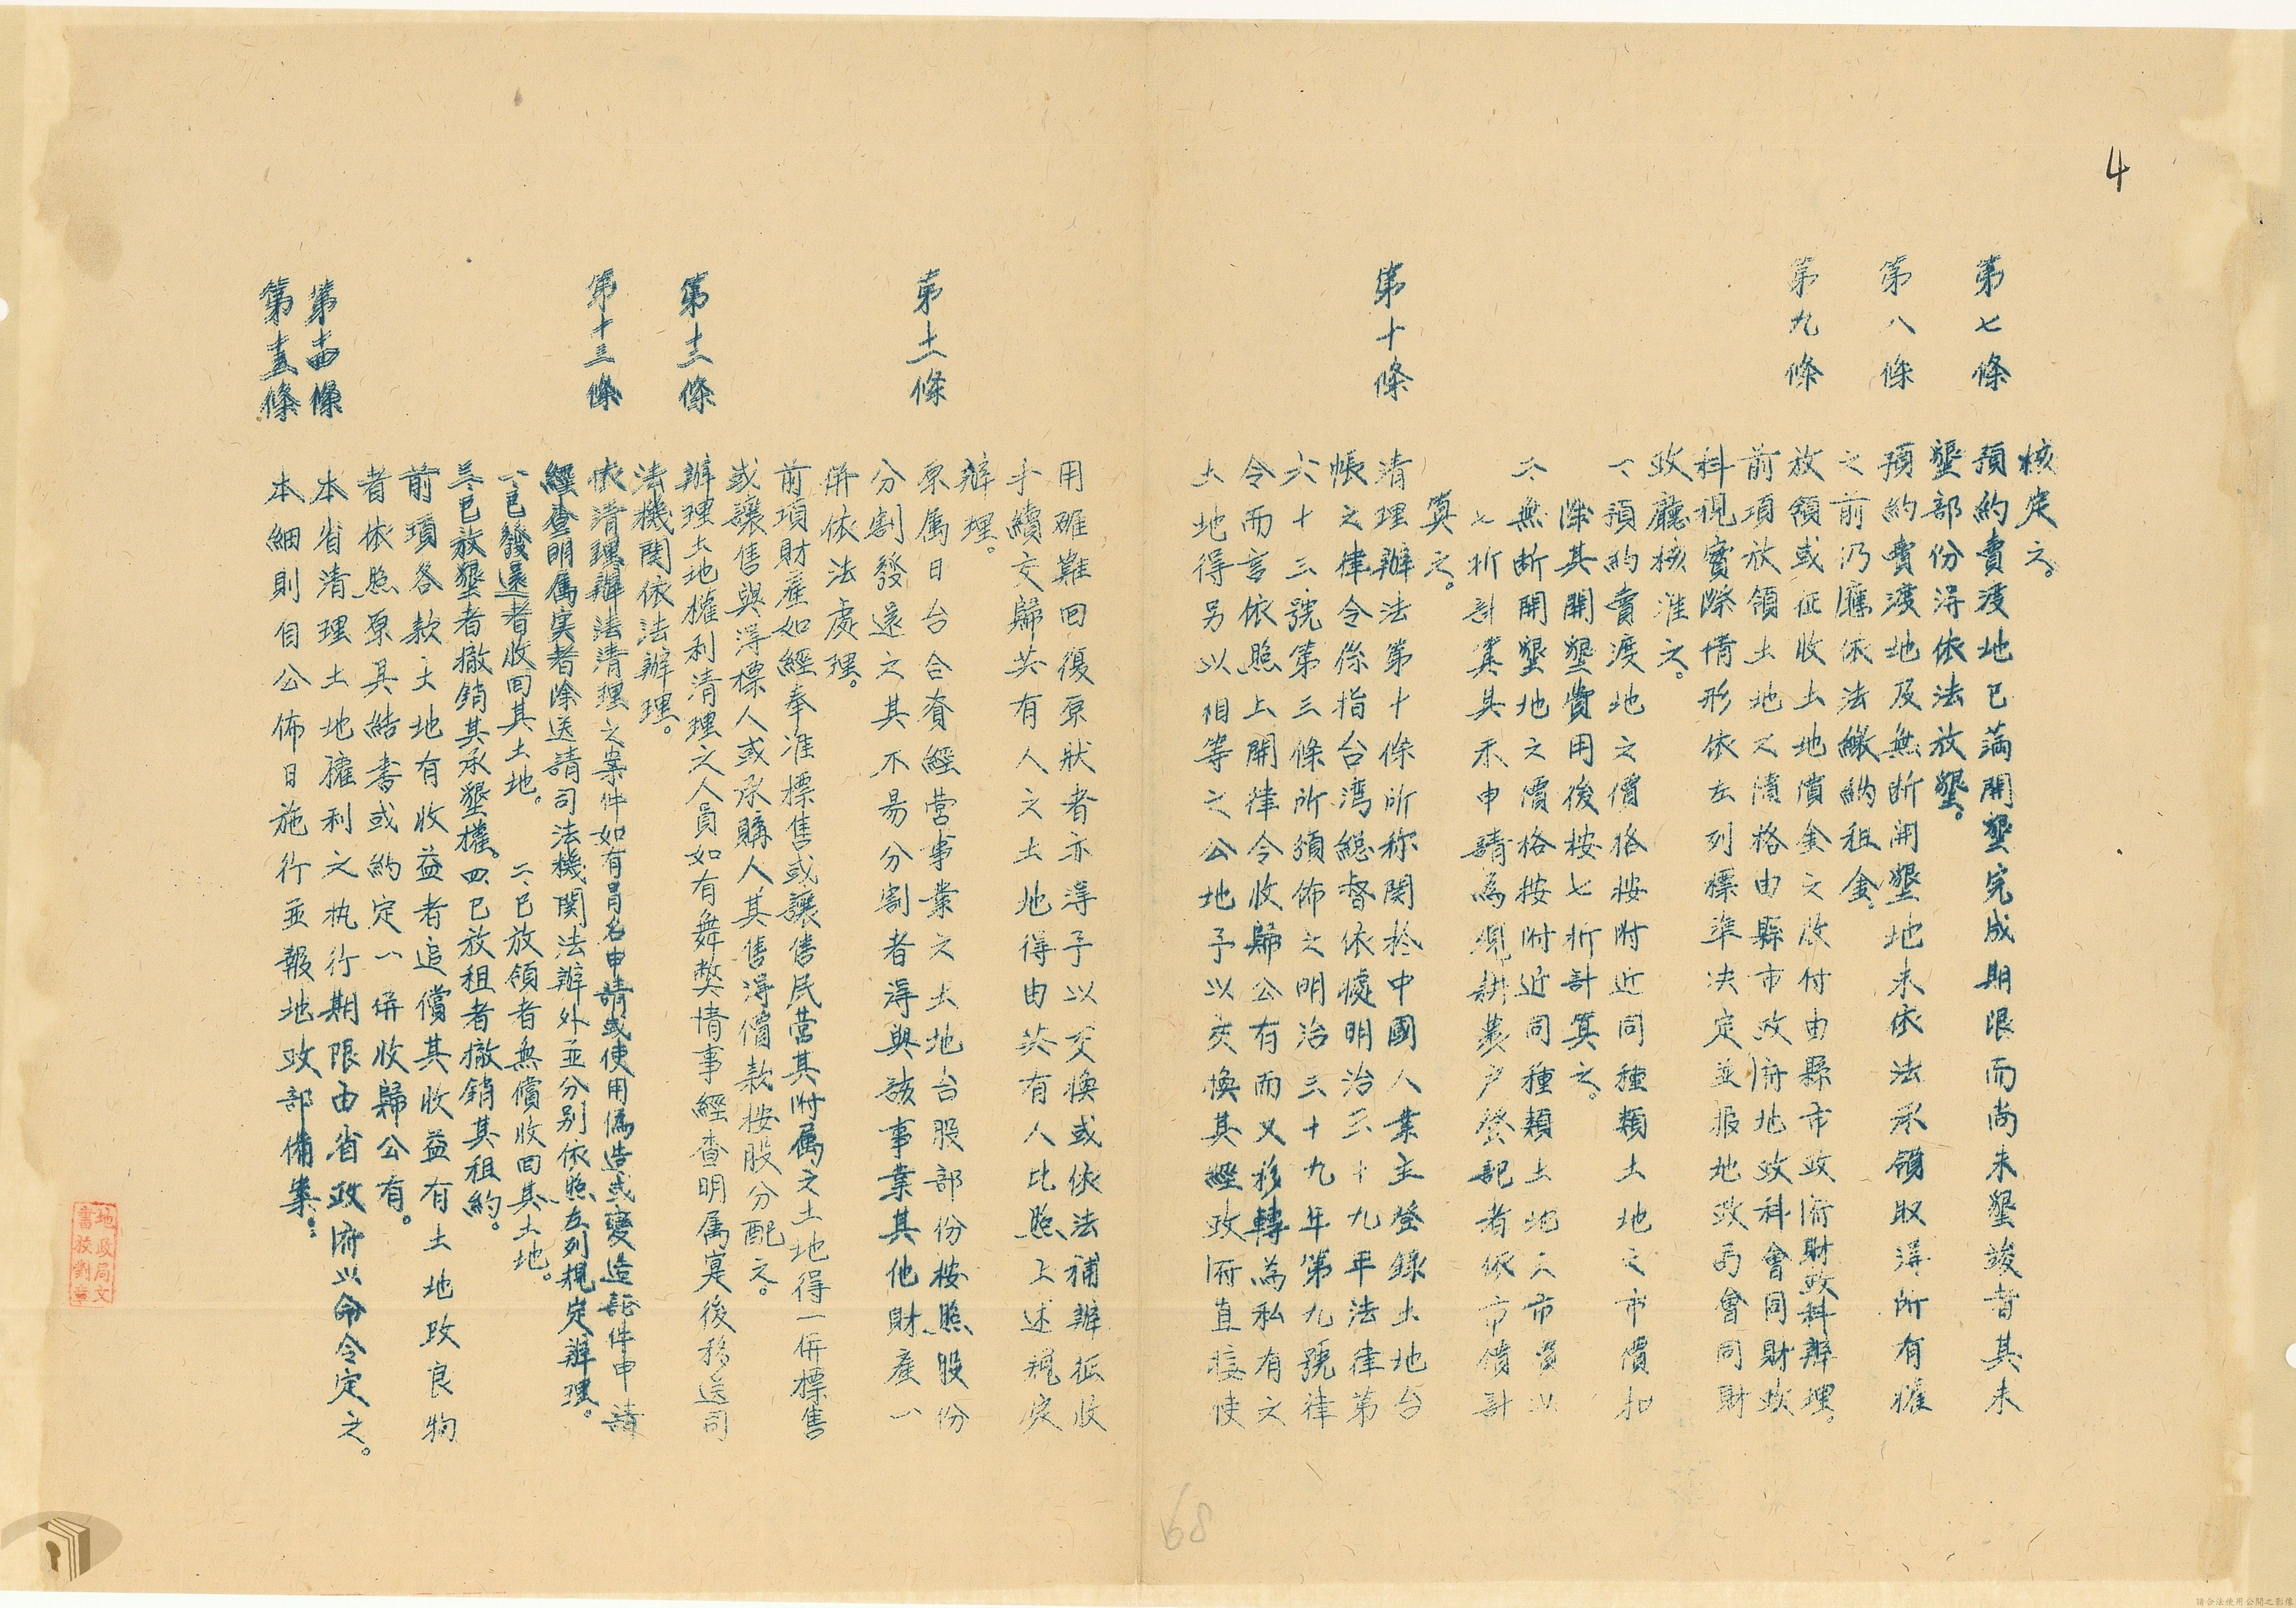 4
核定之。
第七條 預約賣渡地已滿開墾完成期限而尚未墾竣者其未
墾部份得依法放墾。
第八條 預約賣渡地及無斷開墾地未依法承領取得所有權
之前仍應依法繳納租金。
第九條 放領或征收土地償金之收付由縣市政府財政科辦理。
前項放領土地之價格由縣市政府地政科會同財政
科視實際情形依左列標準決定並報地政局會同財
政廳核准之。
一、預約賣渡地之價格按附近同種類土地之市價扣
除其開墾費用後按七折計算之。
二、無斷開墾地之價格按附近同種類土地之市價以
七折計算其未申請為現耕農戶登記者依市價計
算之。
第十條 清理辦法第十條所称関於中國人業主登錄土地台
帳之律令係指台湾総督依據明治三十九年法律第
六十三號第三條所頒佈之明治三十九年第九號律
令而言依照上開律令收歸公有而又移轉為私有之
土地得另以相等之公地予以交換其經政府直接使
用確難回復原狀者亦得予以交換或依法補辦征收
手續交歸共有人之土地得由共有人比照上述規定
辦理。
第十一條 原属日台合資經营事業之土地台股部份按照股份
分割發還之其不易分割者得與該事業其他財產一
併依法處理。
前項財產如經奉准標售或讓售民营其附属之土地得一併標售
或讓售與得標人或承購人其售得價款按股分配之。
第十二條 辦理土地權利清理之人員如有舞弊情事經查明属寔後移送司
法機関依法辦理。
第十三條 依清理辦法清理之案件如有冒名申請或使用偽造或變造証件申請
經查明属实者除送請司法機関法辦外並分別依照左列規定辦理。
一、已發還者收回其土地。 二、已放領者無償收回其土地。
三、已放墾者撤銷其承墾權。四、已放租者撤銷其租約。
前項各款土地有收益者追償其收益有土地改良物
者依照原具結書或約定一併收歸公有。
第十四條 本省清理土地權利之执行期限由省政府以命令定之。
第十五條 本細則自公佈日施行並報地政部備案。
地政局文
書校對章
68
請合法使用公開之影像